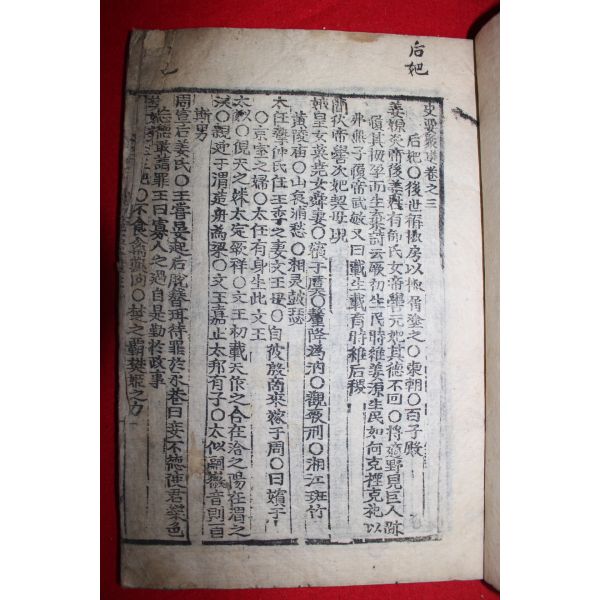 后妃
史要聚選卷之三
后妃○後世稱椒房以椒屑塗之○東朝○百子殿
姜嫄炎帝後姜姓有邰氏女帝嚳元妃其德不回○將適野見巨人跡
履其拇孕而生棄詩云厥初生民時維姜嫄生民如何克禋克祀以
弗無子履帝武敏又曰載生載育時維后稷
簡狄帝嚳次妃契母現
娥皇女英堯女舜妻○嬪于虞○釐降嬀汭○觀厥刑○湘江斑竹
黃陵廟○山哀浦愁○湘灵鼓瑟
太任摯仲氏任王季之妻文王母○自彼殷商來嫁于周○曰嬪于
京○京室之婦○太任有身生此文王
太姒○俔天之妹太定厥祥○文王初載天作之合在洽之陽在渭之
涘○親迎于渭造舟爲梁○文王嘉止太邦有子○太姒嗣徽音則百
斯男
周宣后姜氏○王嘗晏起后脫簪珥待罪於永巷曰妾不德使君樂色
忘德敢請罪王曰寡人之過自是勤於政事
○不食禽獸肉○楚之霸樊姬之力